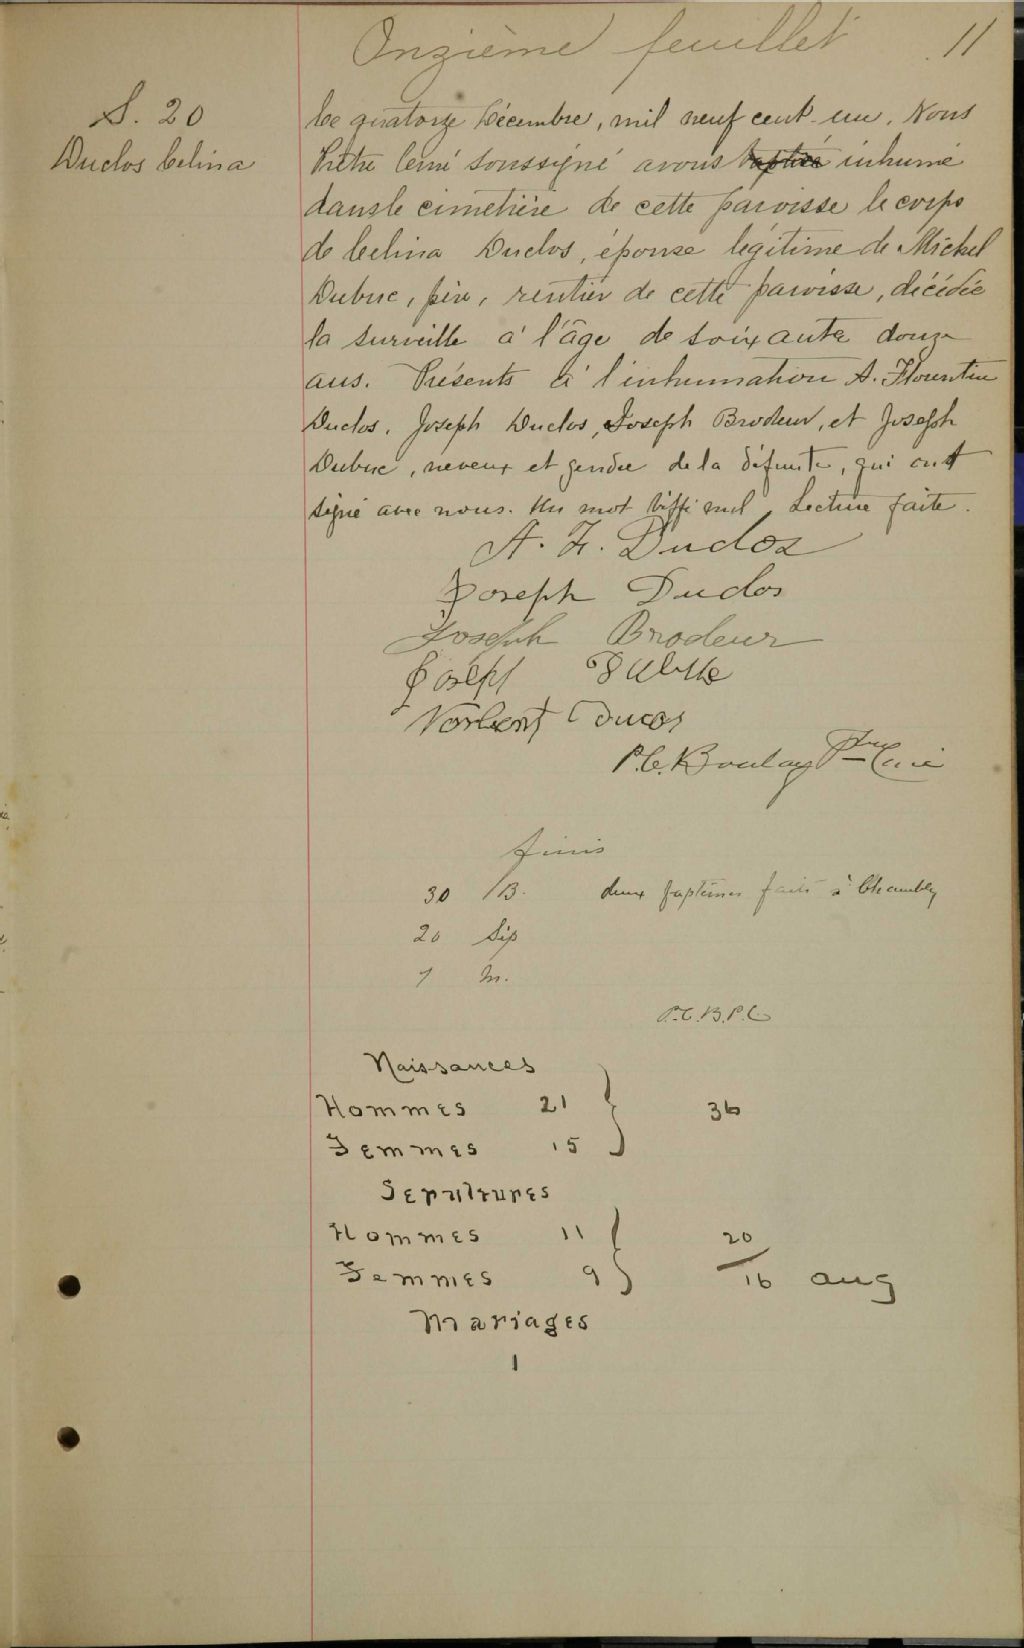 Onzième feuillet 11
S. 20
Duclos Celina
Le quatorze Décembre, mil neuf cent-un, Nous
Prêtre Curé soussigné avons baptisé inhumé
dans le cimetière de cette paroisse le corps
de Celina Duclos, épouse légitime de Michel
Dubuc, père, rentier de cette paroisse, décédée
la surveille à l'âge de soixante douze
ans. Présents à l'inhumation A. Florentin
Duclos, Joseph Duclos, Joseph Brodeur, et Joseph
Dubuc, neveux et gendre de la défunte, qui ont
signé avec nous. Un mot biffé nul, Lecture faite.
A. F. Duclos
Joseph Duclos
Joseph Brodeur
Joseph Dubuc
Norbert
P.C. Boulay Ptre Curé
finis
30 B. deux baptêmes faits à Chambly
20 Sép
1 M.
P.C.B.P.C.
Naissances
Hommes 21 } 36
Femmes 15
Sepultures
Hommes 11 } 20
Femmes 9 16 aug
Mariages
1